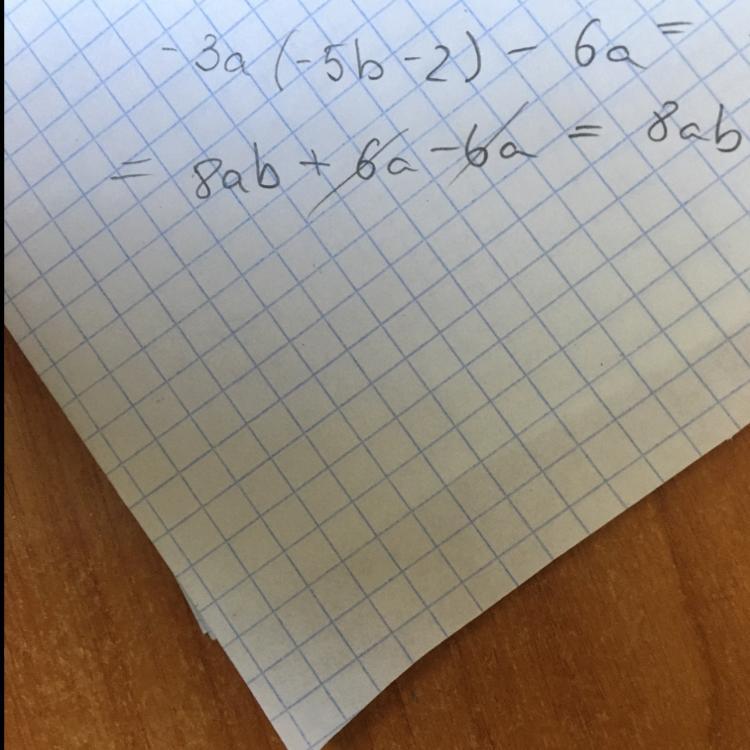 -3a (-5b -2) - 6a =
= 8ab + 6a - 6a = 8ab